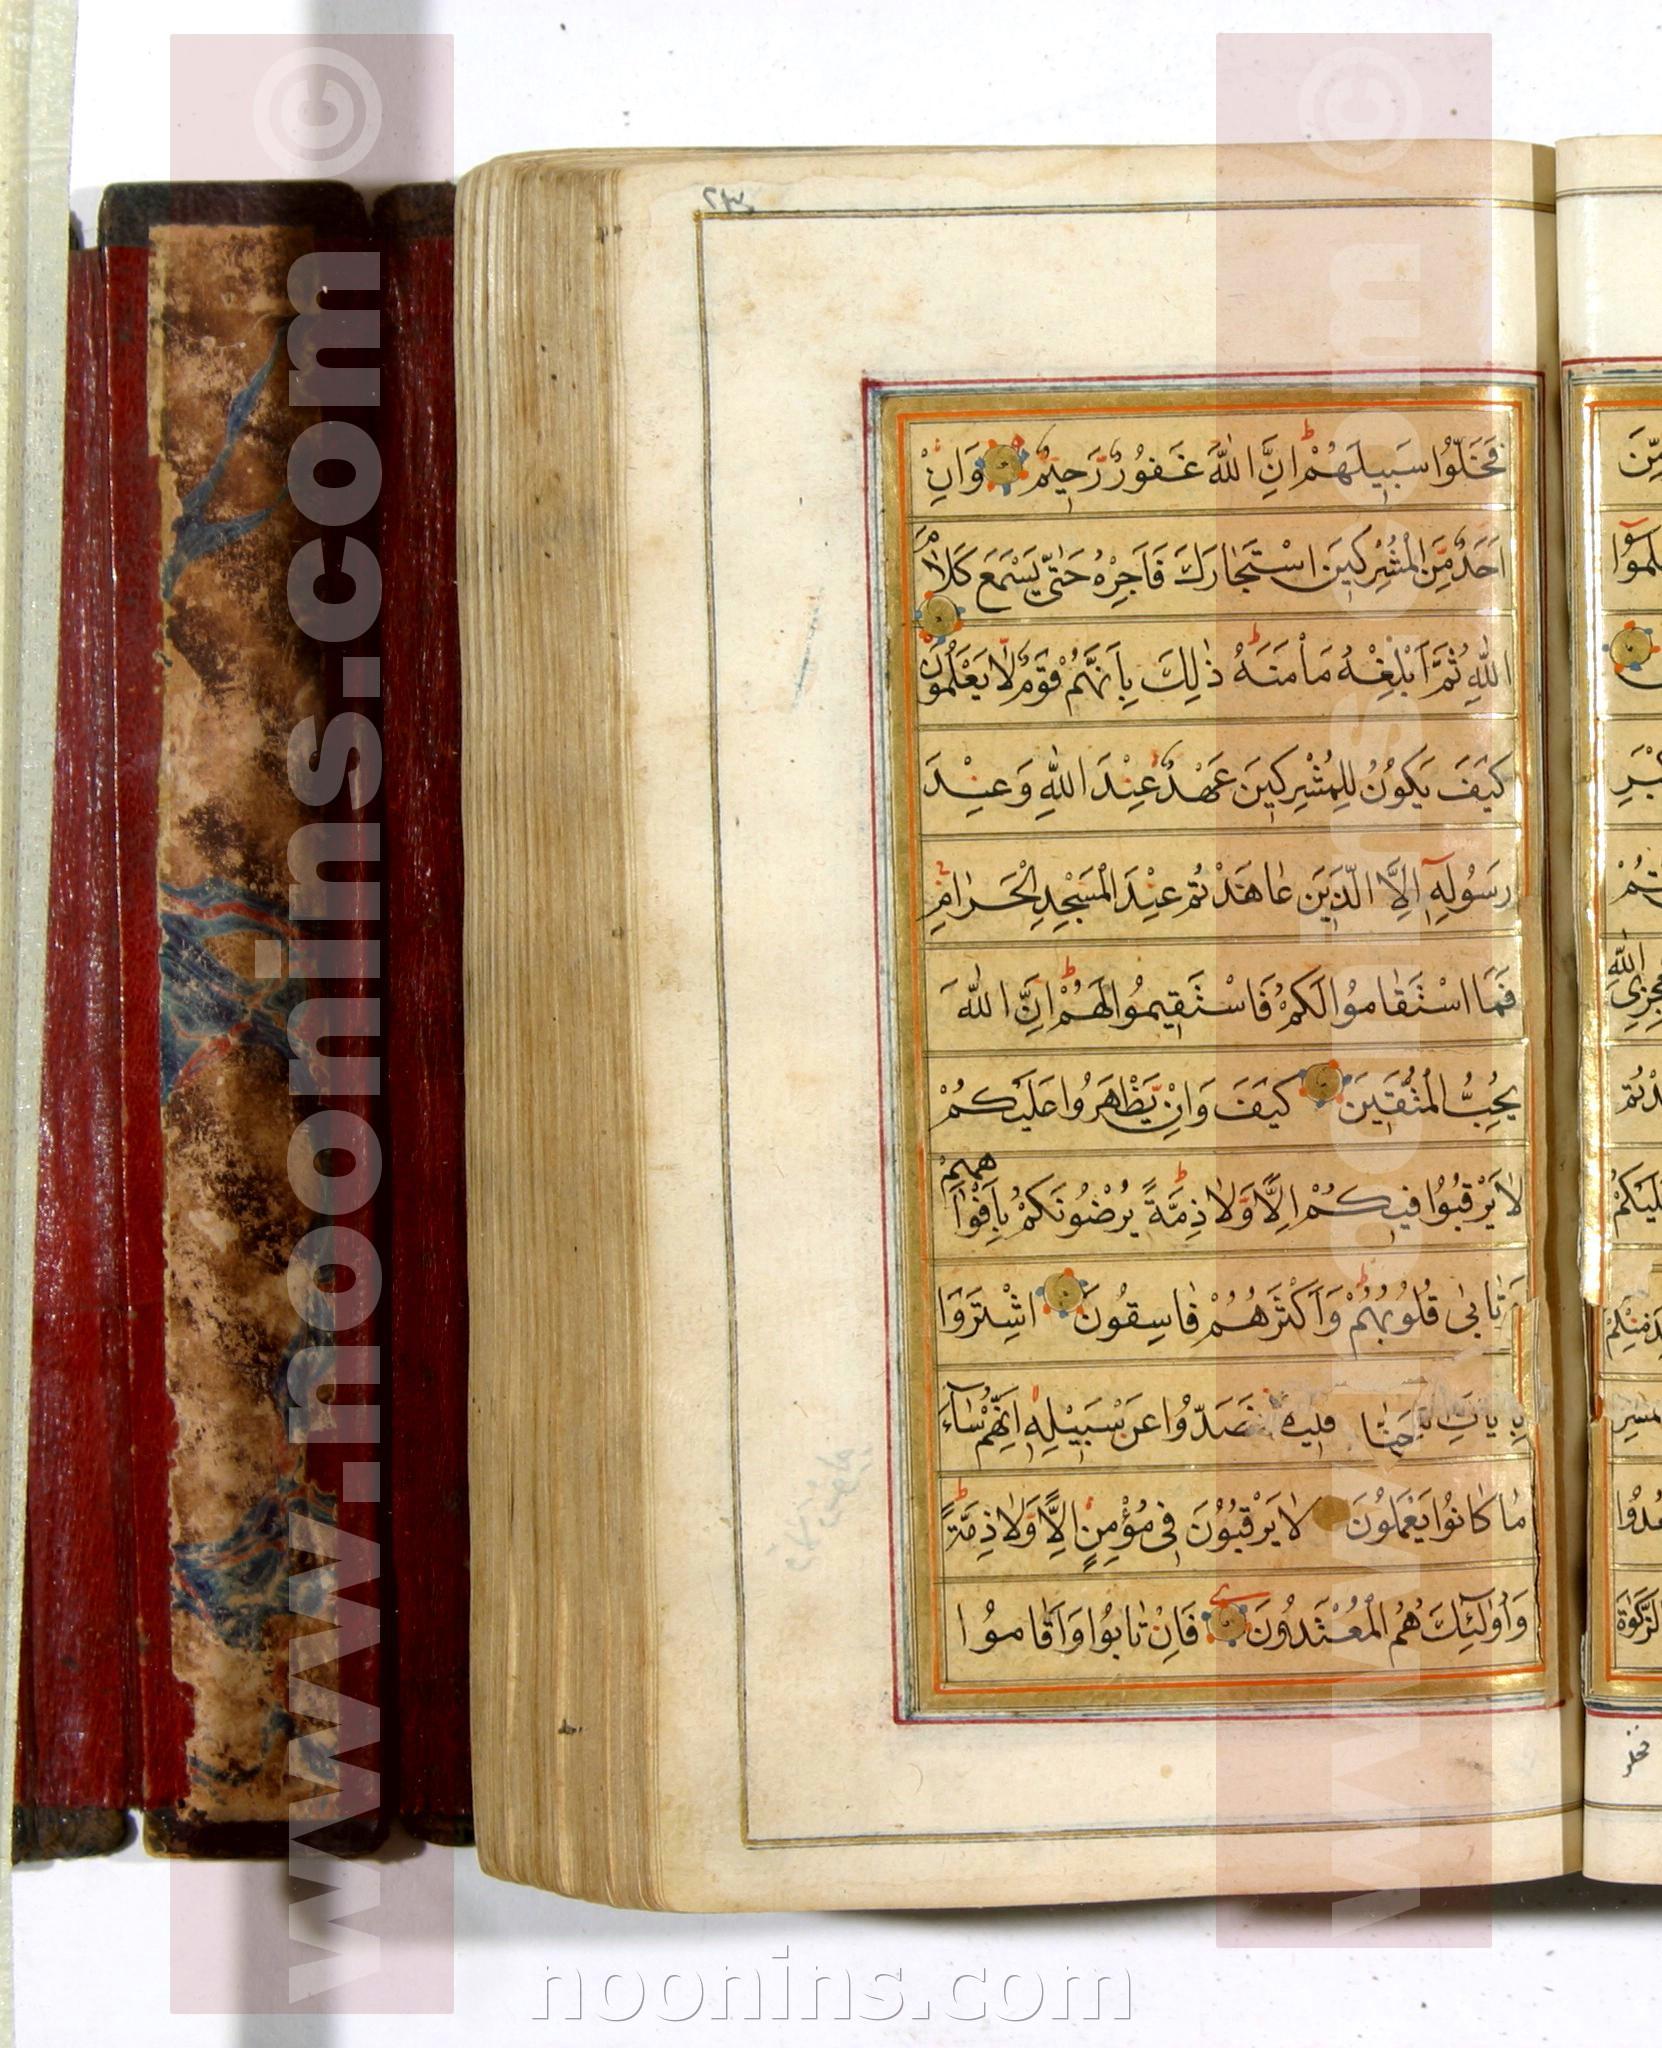 ٢٣٤
فَخَلُّوا سَبِيلَهُمْ اِنَّ اللّٰهَ غَفُورٌ رَحِيمٌ وَاِنْ
اَحَدٌ مِنَ الْمُشْرِكِينَ اسْتَجَارَكَ فَاَجِرْهُ حَتّٰى يَسْمَعَ كَلَامَ
اللّٰهِ ثُمَّ اَبْلِغْهُ مَاْمَنَهُ ذٰلِكَ بِاَنَّهُمْ قَوْمٌ لَا يَعْلَمُونَ
كَيْفَ يَكُونُ لِلْمُشْرِكِينَ عَهْدٌ عِنْدَ اللّٰهِ وَعِنْدَ
رَسُولِهِ اِلَّا الَّذِينَ عَاهَدْتُمْ عِنْدَ الْمَسْجِدِ الْحَرَامِ
فَمَا اسْتَقَامُوا لَكُمْ فَاسْتَقِيمُوا لَهُمْ اِنَّ اللّٰهَ
يُحِبُّ الْمُتَّقِينَ كَيْفَ وَاِنْ يَظْهَرُوا عَلَيْكُمْ
لَا يَرْقُبُوا فِيكُمْ اِلًّا وَلَا ذِمَّةً يُرْضُونَكُمْ بِاَفْوَاهِهِمْ
وَتَابٰى قُلُوبُهُمْ وَاَكْثَرُهُمْ فَاسِقُونَ اشْتَرَوْا
بِاٰيَاتِ ثَمَنًا قَلِيلًا فَصَدُّوا عَنْ سَبِيلِهِ اِنَّهُمْ سَاۤءَ
مَا كَانُوا يَعْمَلُونَ لَا يَرْقُبُونَ فِى مُؤْمِنٍ اِلًّا وَلَا ذِمَّةً
وَاُولٰۤئِكَ هُمُ الْمُعْتَدُونَ فَاِنْ تَابُوا وَاَقَامُوا
www.noonins.com ©
www.noonins.com ©
noonins.com